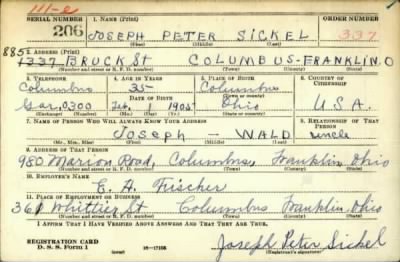 111-e
SERIAL NUMBER 1. NAME (Print) ORDER NUMBER
206 JOSEPH PETER SICKEL 337
(First) (Middle) (Last)
885
2. ADDRESS (Print)
1337 BRUCK St COLUMBUS-FRANKLIN. O
(Number and street or R. F. D. number) (Town) (County) (State)
3. TELEPHONE 4. AGE IN YEARS 5. PLACE OF BIRTH 6. COUNTRY OF CITIZENSHIP
Columbus 35 Columbus
DATE OF BIRTH (Town or county)
Gar. 0300 Feb. 1 1905 Ohio U.S.A.
(Exchange) (Number) (Mo.) (Day) (Yr.) (State or country)
7. NAME OF PERSON WHO WILL ALWAYS KNOW YOUR ADDRESS 8. RELATIONSHIP OF THAT PERSON
JOSEPH - WALD uncle
(Mr., Mrs., Miss) (First) (Middle) (Last)
9. ADDRESS OF THAT PERSON
980 Marion Road, Columbus, Franklin, Ohio
(Number and street or R. F. D. number) (Town) (County) (State)
10. EMPLOYER'S NAME
E. A. Fischer
11. PLACE OF EMPLOYMENT OR BUSINESS
361 Whittier St Columbus Franklin, Ohio
(Number and street or R. F. D. number) (Town) (County) (State)
I AFFIRM THAT I HAVE VERIFIED ABOVE ANSWERS AND THAT THEY ARE TRUE.
REGISTRATION CARD
D. S. S. Form 1 16-17105 Joseph Peter Sickel
(Registrant's signature)